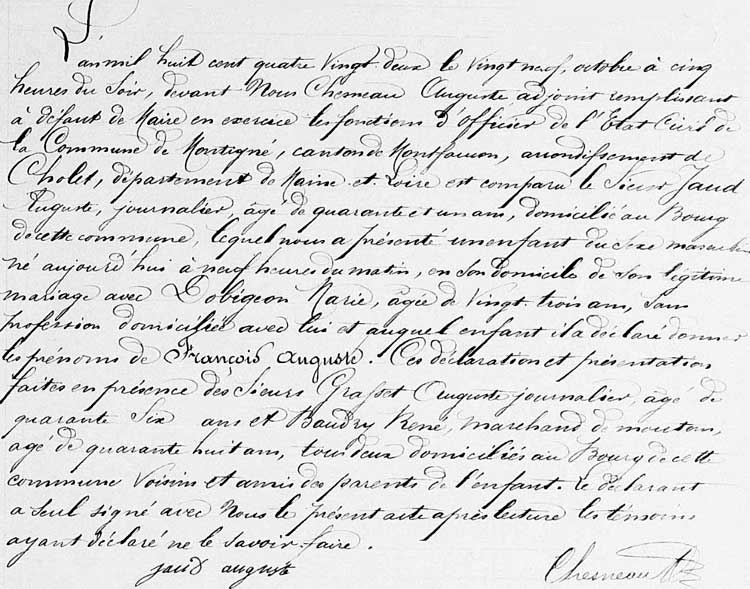 L'an mil huit cent quatre Vingt deux le Vingt neuf, octobre à cinq
heures du Soir, devant Nous Chesneau Auguste, adjoint remplissant
à défaut de Maire en exercice les fonctions d'Officier de l'Etat Civil de
la Commune de Montigné, canton de Montfaucon, arrondissement de
Cholet, département de Maine-et-Loire est comparu le Sieur Jaud
Auguste, journalier, âgé de quarante et un ans, domicilié au Bourg
de cette commune, lequel nous a présenté un enfant du sexe masculin
né aujourd'hui à neuf heures du matin, en son domicile de son légitime
mariage avec Dobigeon Marie, âgée de Vingt-trois ans, sans
profession domiciliée avec lui et auquel enfant il a déclaré donner
les prénoms de François Auguste. Ces déclaration et présentation
faites en présence des Sieurs Grasset Auguste journalier, âgé de
quarante Six ans et Baudry René, marchand de moutons,
agé de quarante huit ans, tous deux domiciliés au Bourg de cette
commune Voisins et amis des parents de l'enfant. Le déclarant
a seul signé avec Nous le présent acte après lecture les témoins
ayant déclaré ne le savoir-faire.
jaud auguste Chesneau